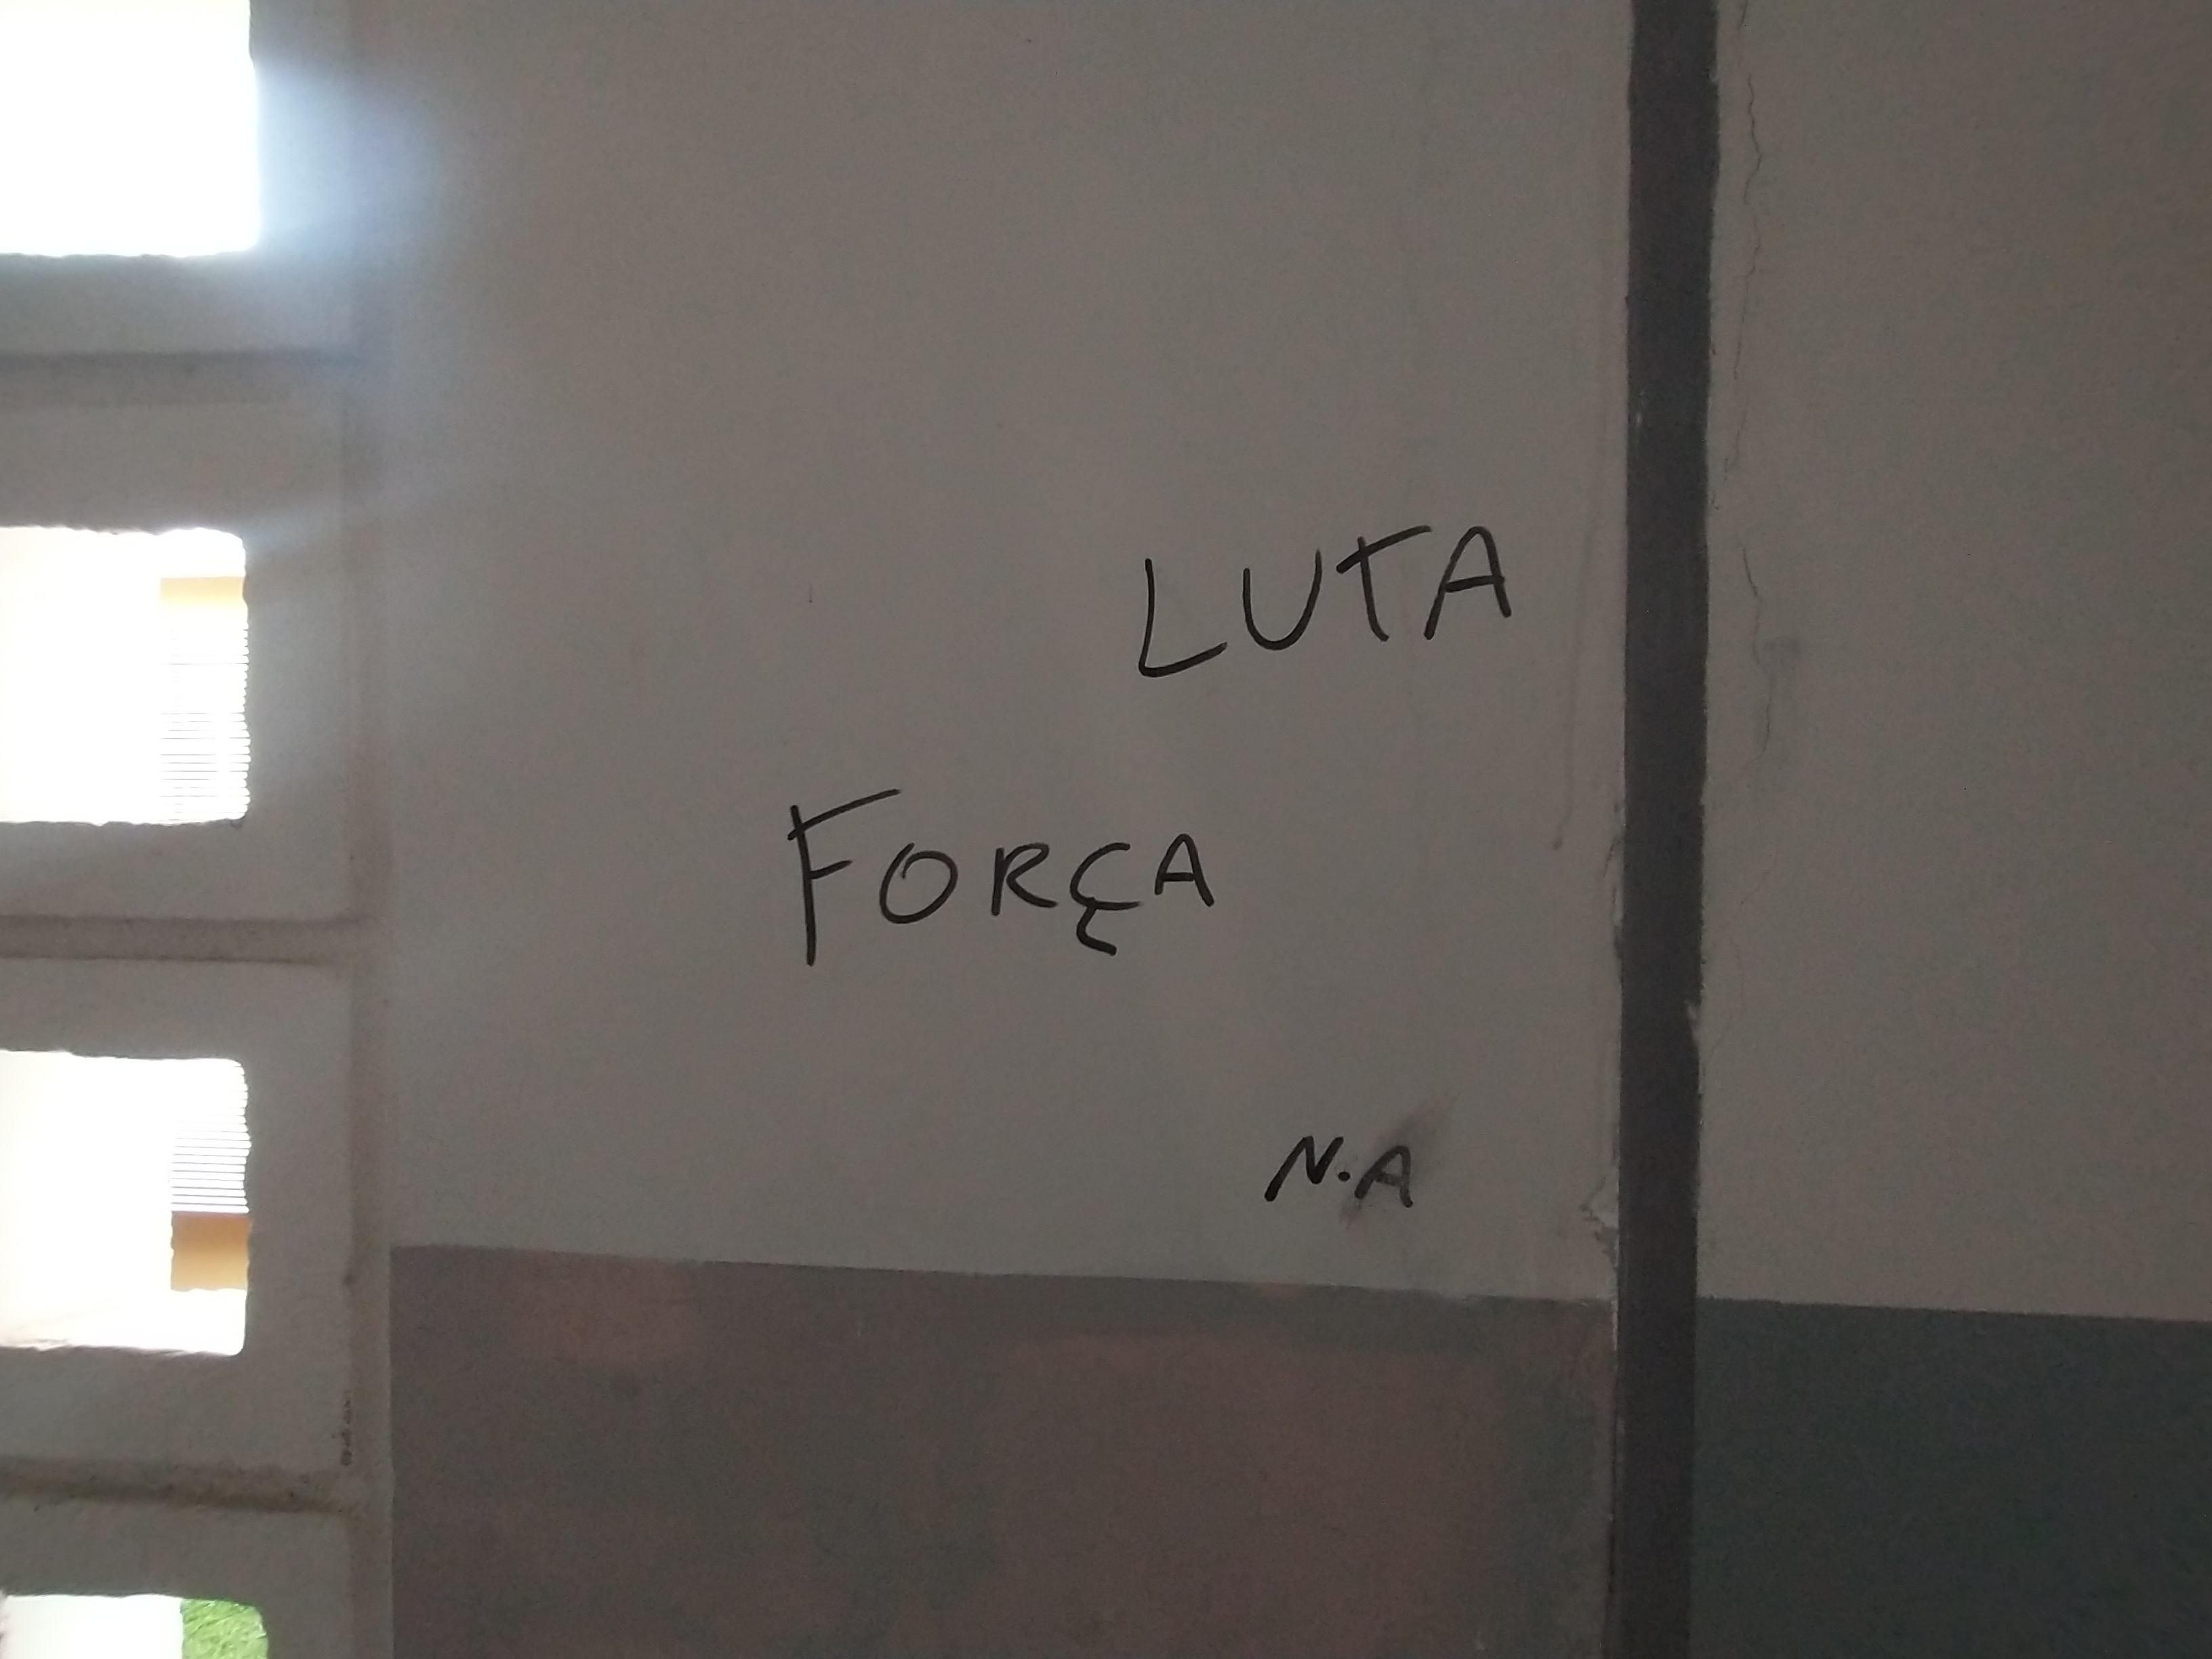 LUTA
FORÇA
N.A